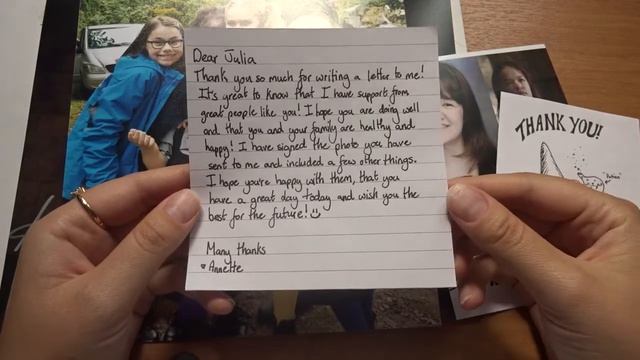 Dear Julia
Thank you so much for writing a letter to me!
It's great to know that I have supports from
great people like you! I hope you are doing well
and that you and your family are healthy and
happy! I have signed the photo you have
sent to me and included a few other things.
I hope you're happy with them, that you
have a great day today and wish you the
best for the future!
Many thanks
Annette
THANK YOU!